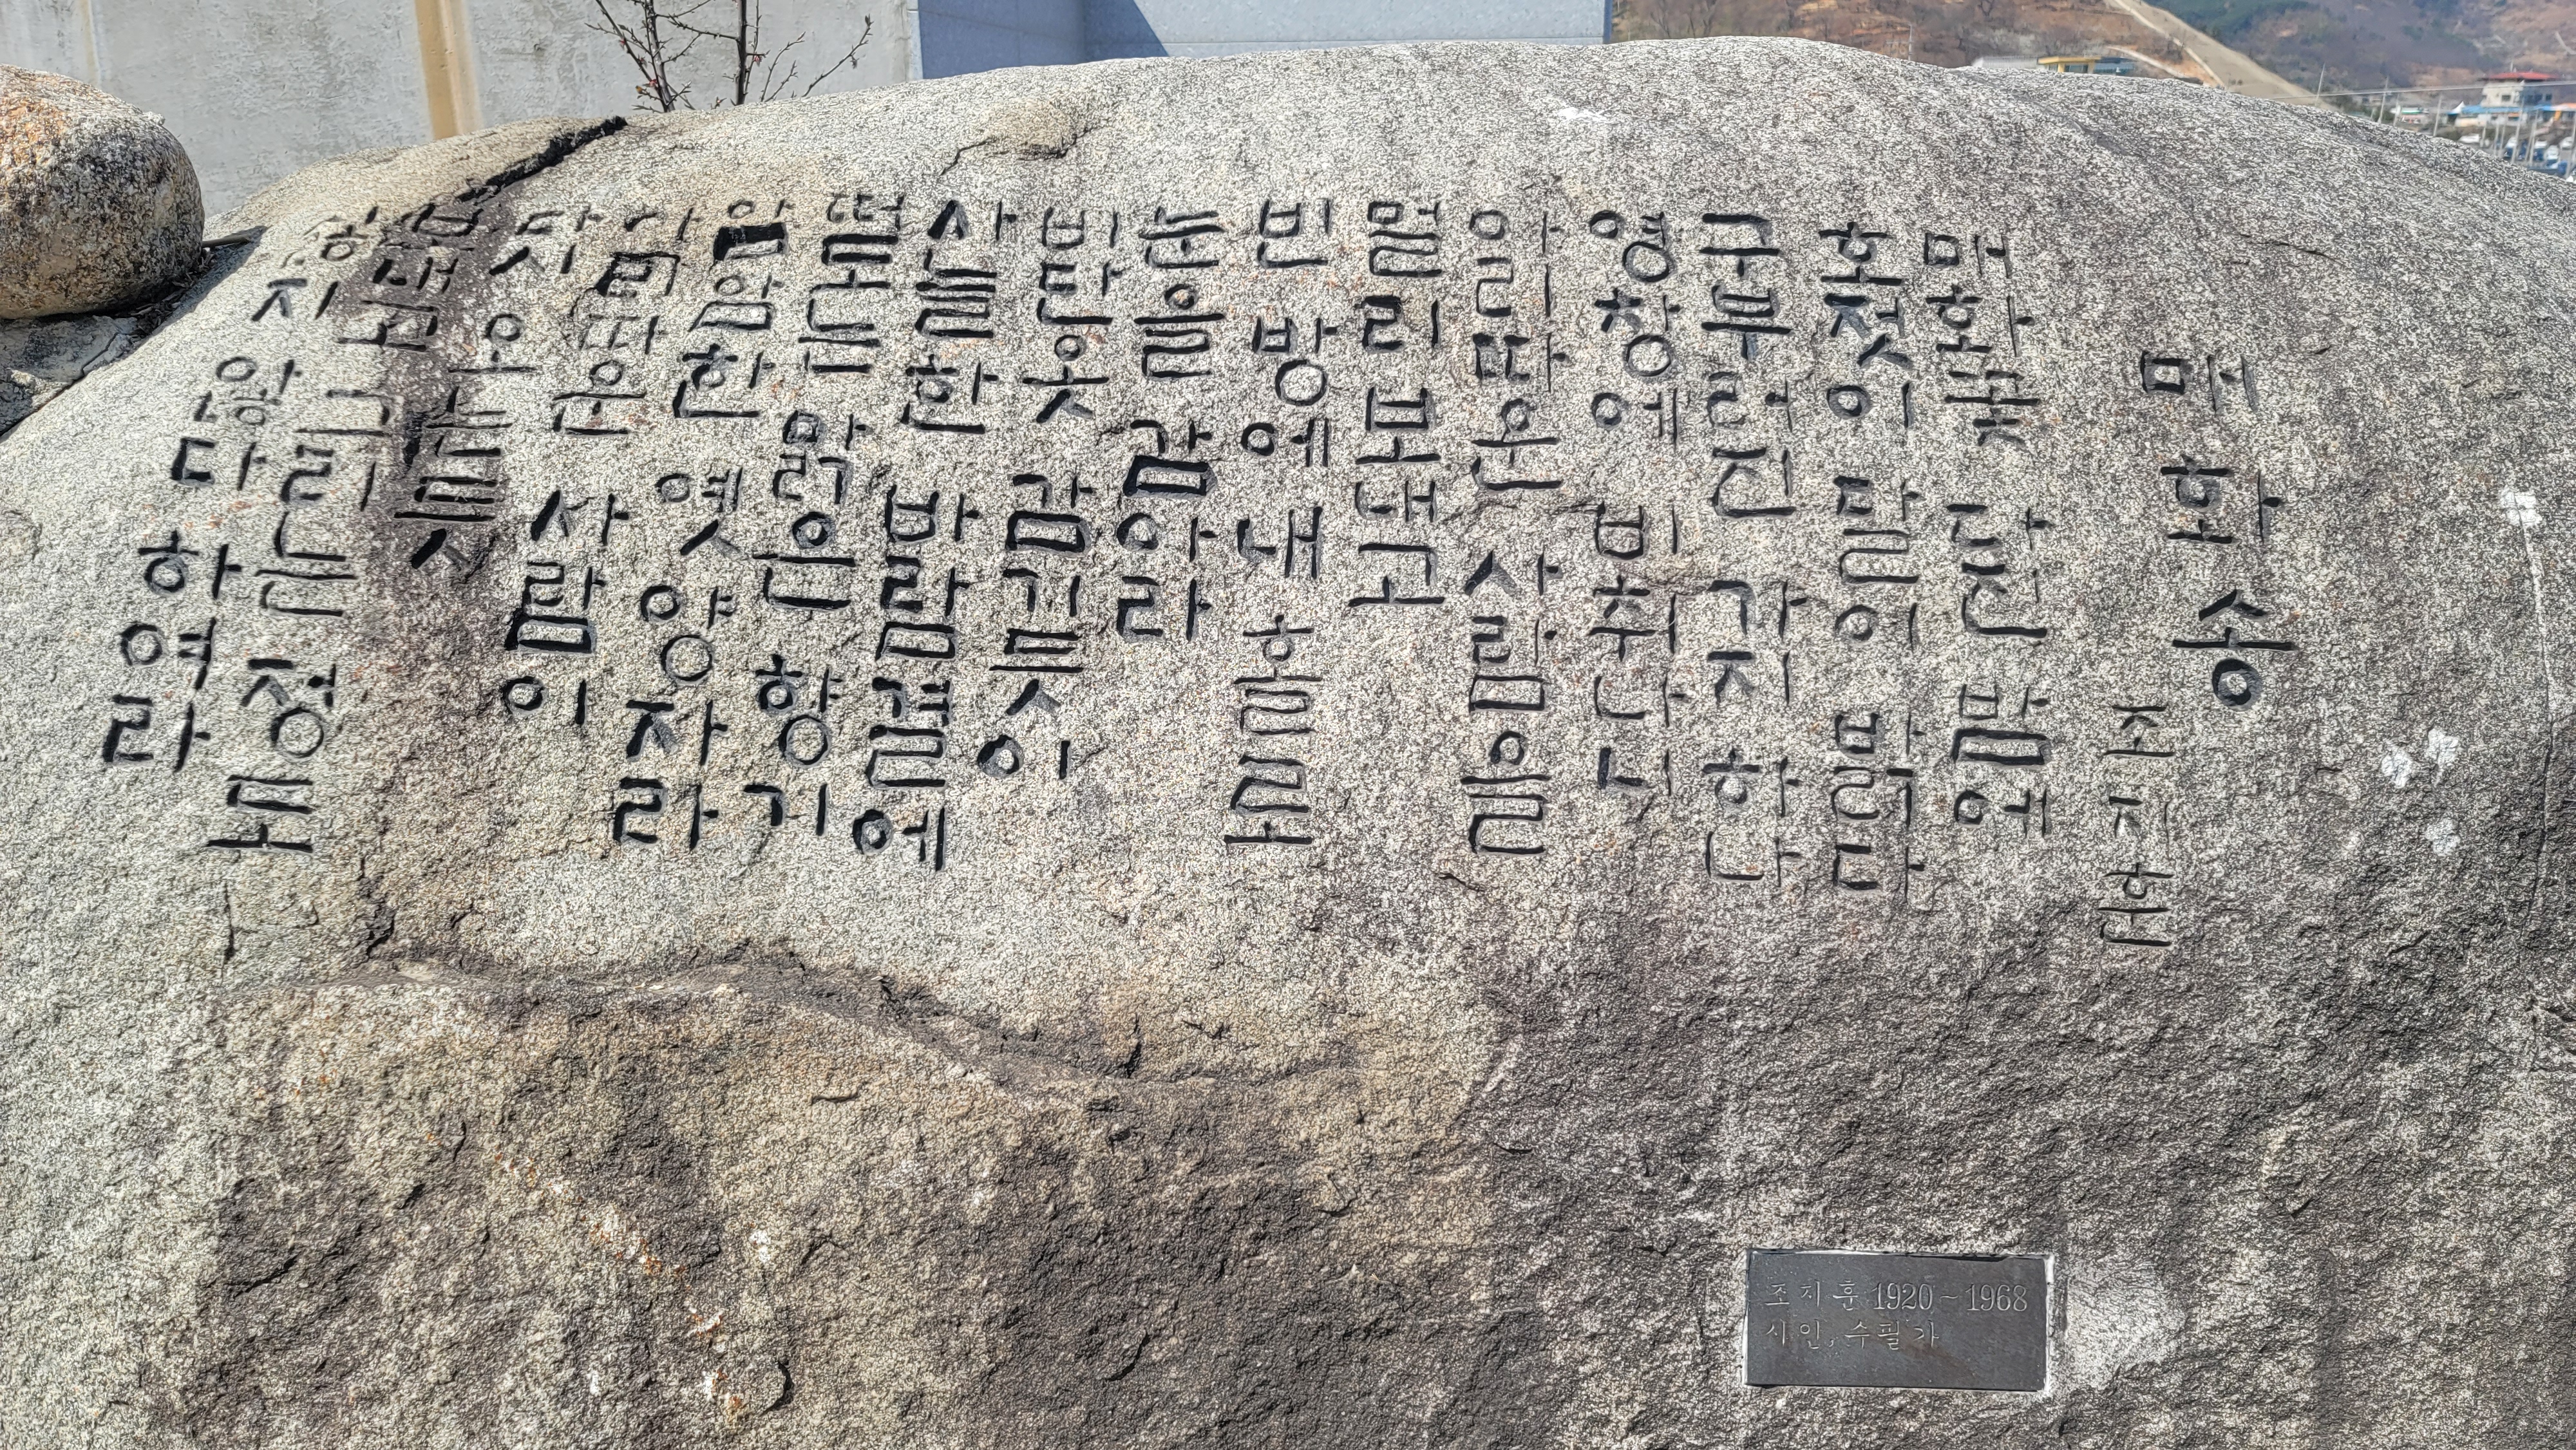 매화송
조지훈
매화꽃 다진 밤에
호젓이 달이 밝다
구부러진 가지 하나
영창에 비취나니
아리따운 사람을
멀리 보내고
빈 방에 내 홀로
눈을 감아라
비단옷 감기듯이
사늘한 바람결에
떠도는 맑은 향기
암암한 옛 양자라
아리따운 사람이
다시 오는듯
보내고 그리는 정도
싫지 않다 하여라
조지훈 1920~1968
시인, 수필가